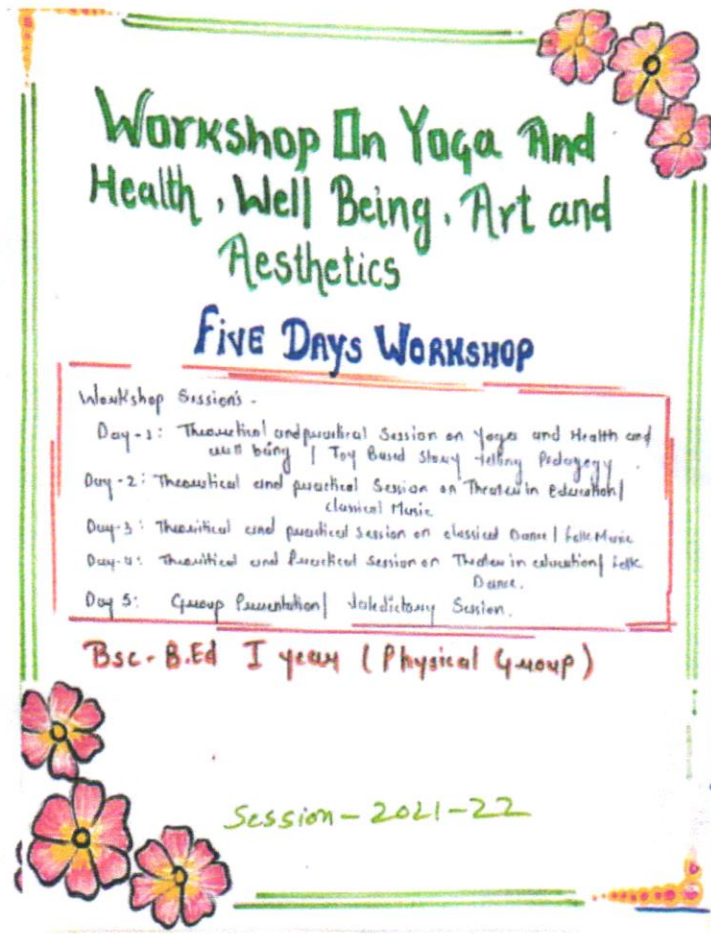 Workshop On Yoga And
Health, Well Being, Art and
Aesthetics
FIVE DAYS WORKSHOP
Workshop Sessions -
Day-1: Theoretical and practical Session on Yoga and Health and
well being / Toy Based Story telling Pedagogy.
Day-2: Theoretical and practical Session on Theater in Education/
classical Music
Day-3: Theoritical and practical Session on classical Dance / Folk Music
Day-4: Theoritical and Practical Session on Theater in education/ folk
Dance.
Day 5: Group Presentation/ Valedictory Session.
Bsc-B.Ed I year (Physical Group)
Session-2021-22